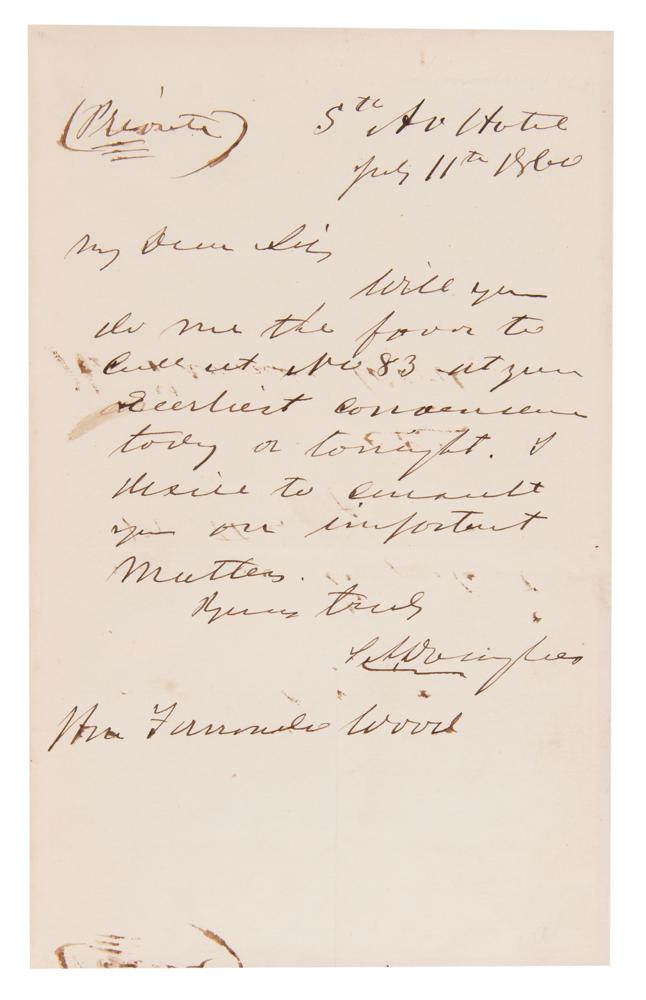 (Private)
5th Av Hotel
July 11th 1860
My Dear Sir,
Will you
do me the favor to
call at No 83 at your
earliest convenience
today or tonight. I
desire to consult
you on important
Matters.
Yours truly
S A Douglas
Hon Fernando Wood